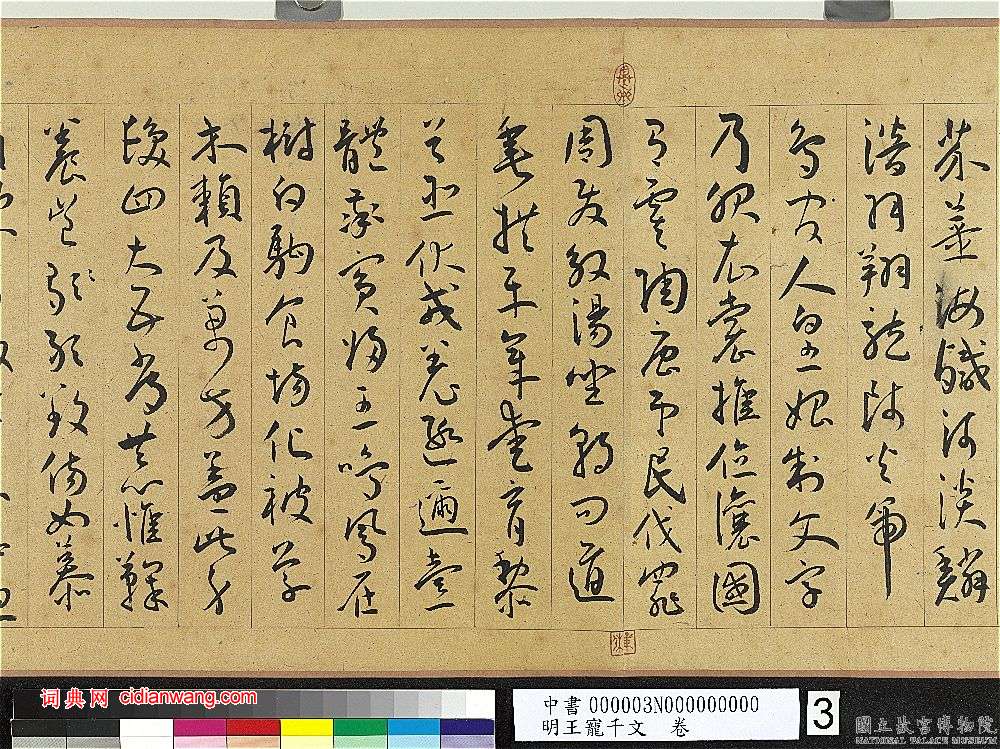 芥薑海鹹河淡鱗
潛羽翔龍師火帝
鳥官人皇始制文字
乃服衣裳推位讓國
有虞陶唐弔民伐罪
周發殷湯坐朝問道
垂拱平章愛育黎
首臣伏戎羌遐邇壹
體率賓歸王鳴鳳在
樹白駒食場化被草
木賴及萬方蓋此身
髮四大五常恭惟鞠
養豈敢毀傷女慕
词典网 cidianwang.com
中書 000003N000000000
明王寵千文 卷
3
國立故宮博物院
NATIONAL PALACE MUSEUM